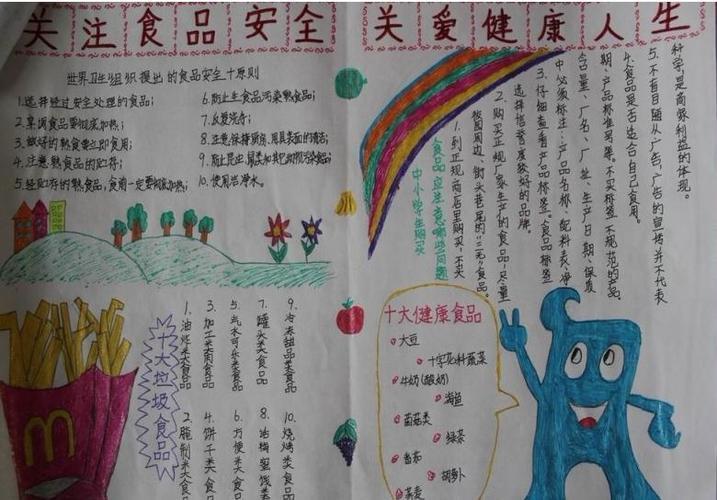 关注食品安全
关爱健康人生
世界卫生组织提出的食品安全十原则
1.选择经过安全处理的食品;
2.烹调食品要彻底加热;
3.做好的熟食要立即食用;
4.注意熟食品的贮存;
5.经贮存的熟食品,食用前一定要彻底加热;
6.防止生食品污染熟食品;
7.反复洗手;
8.注意保持厨房用具表面的清洁;
9.防止昆虫、鼠类和其它动物污染食品;
10.使用洁净水。
十大垃圾食品
1.油炸类食品
2.腌制类食品
3.加工类肉食品
4.饼干类食品
5.汽水可乐类食品
6.方便类食品
7.罐头类食品
8.话梅蜜饯类
9.冷冻甜品类食品
10.烧烤类食品
中小学生购买
食品应注意哪些问题
1.到正规商店里购买,不买
校园周边、街头巷尾的"三无"食品。
2.购买正规厂家生产的食品,尽量
选择信誉度较好的品牌。
3.仔细查看产品标签。食品标签
中必须标注:产品名称、配料表、净
含量、厂名、厂址、生产日期、保质
期、产品标准号等。不买标签不规范的产品。
4.食品是否适合自己食用。
5.不盲目随从广告,广告的宣传并不代表
科学,是商家利益的体现。
十大健康食品
大豆
十字花科蔬菜
牛奶(酸奶)
海鱼
菌菇类
绿茶
番茄
胡萝卜
荞麦
m